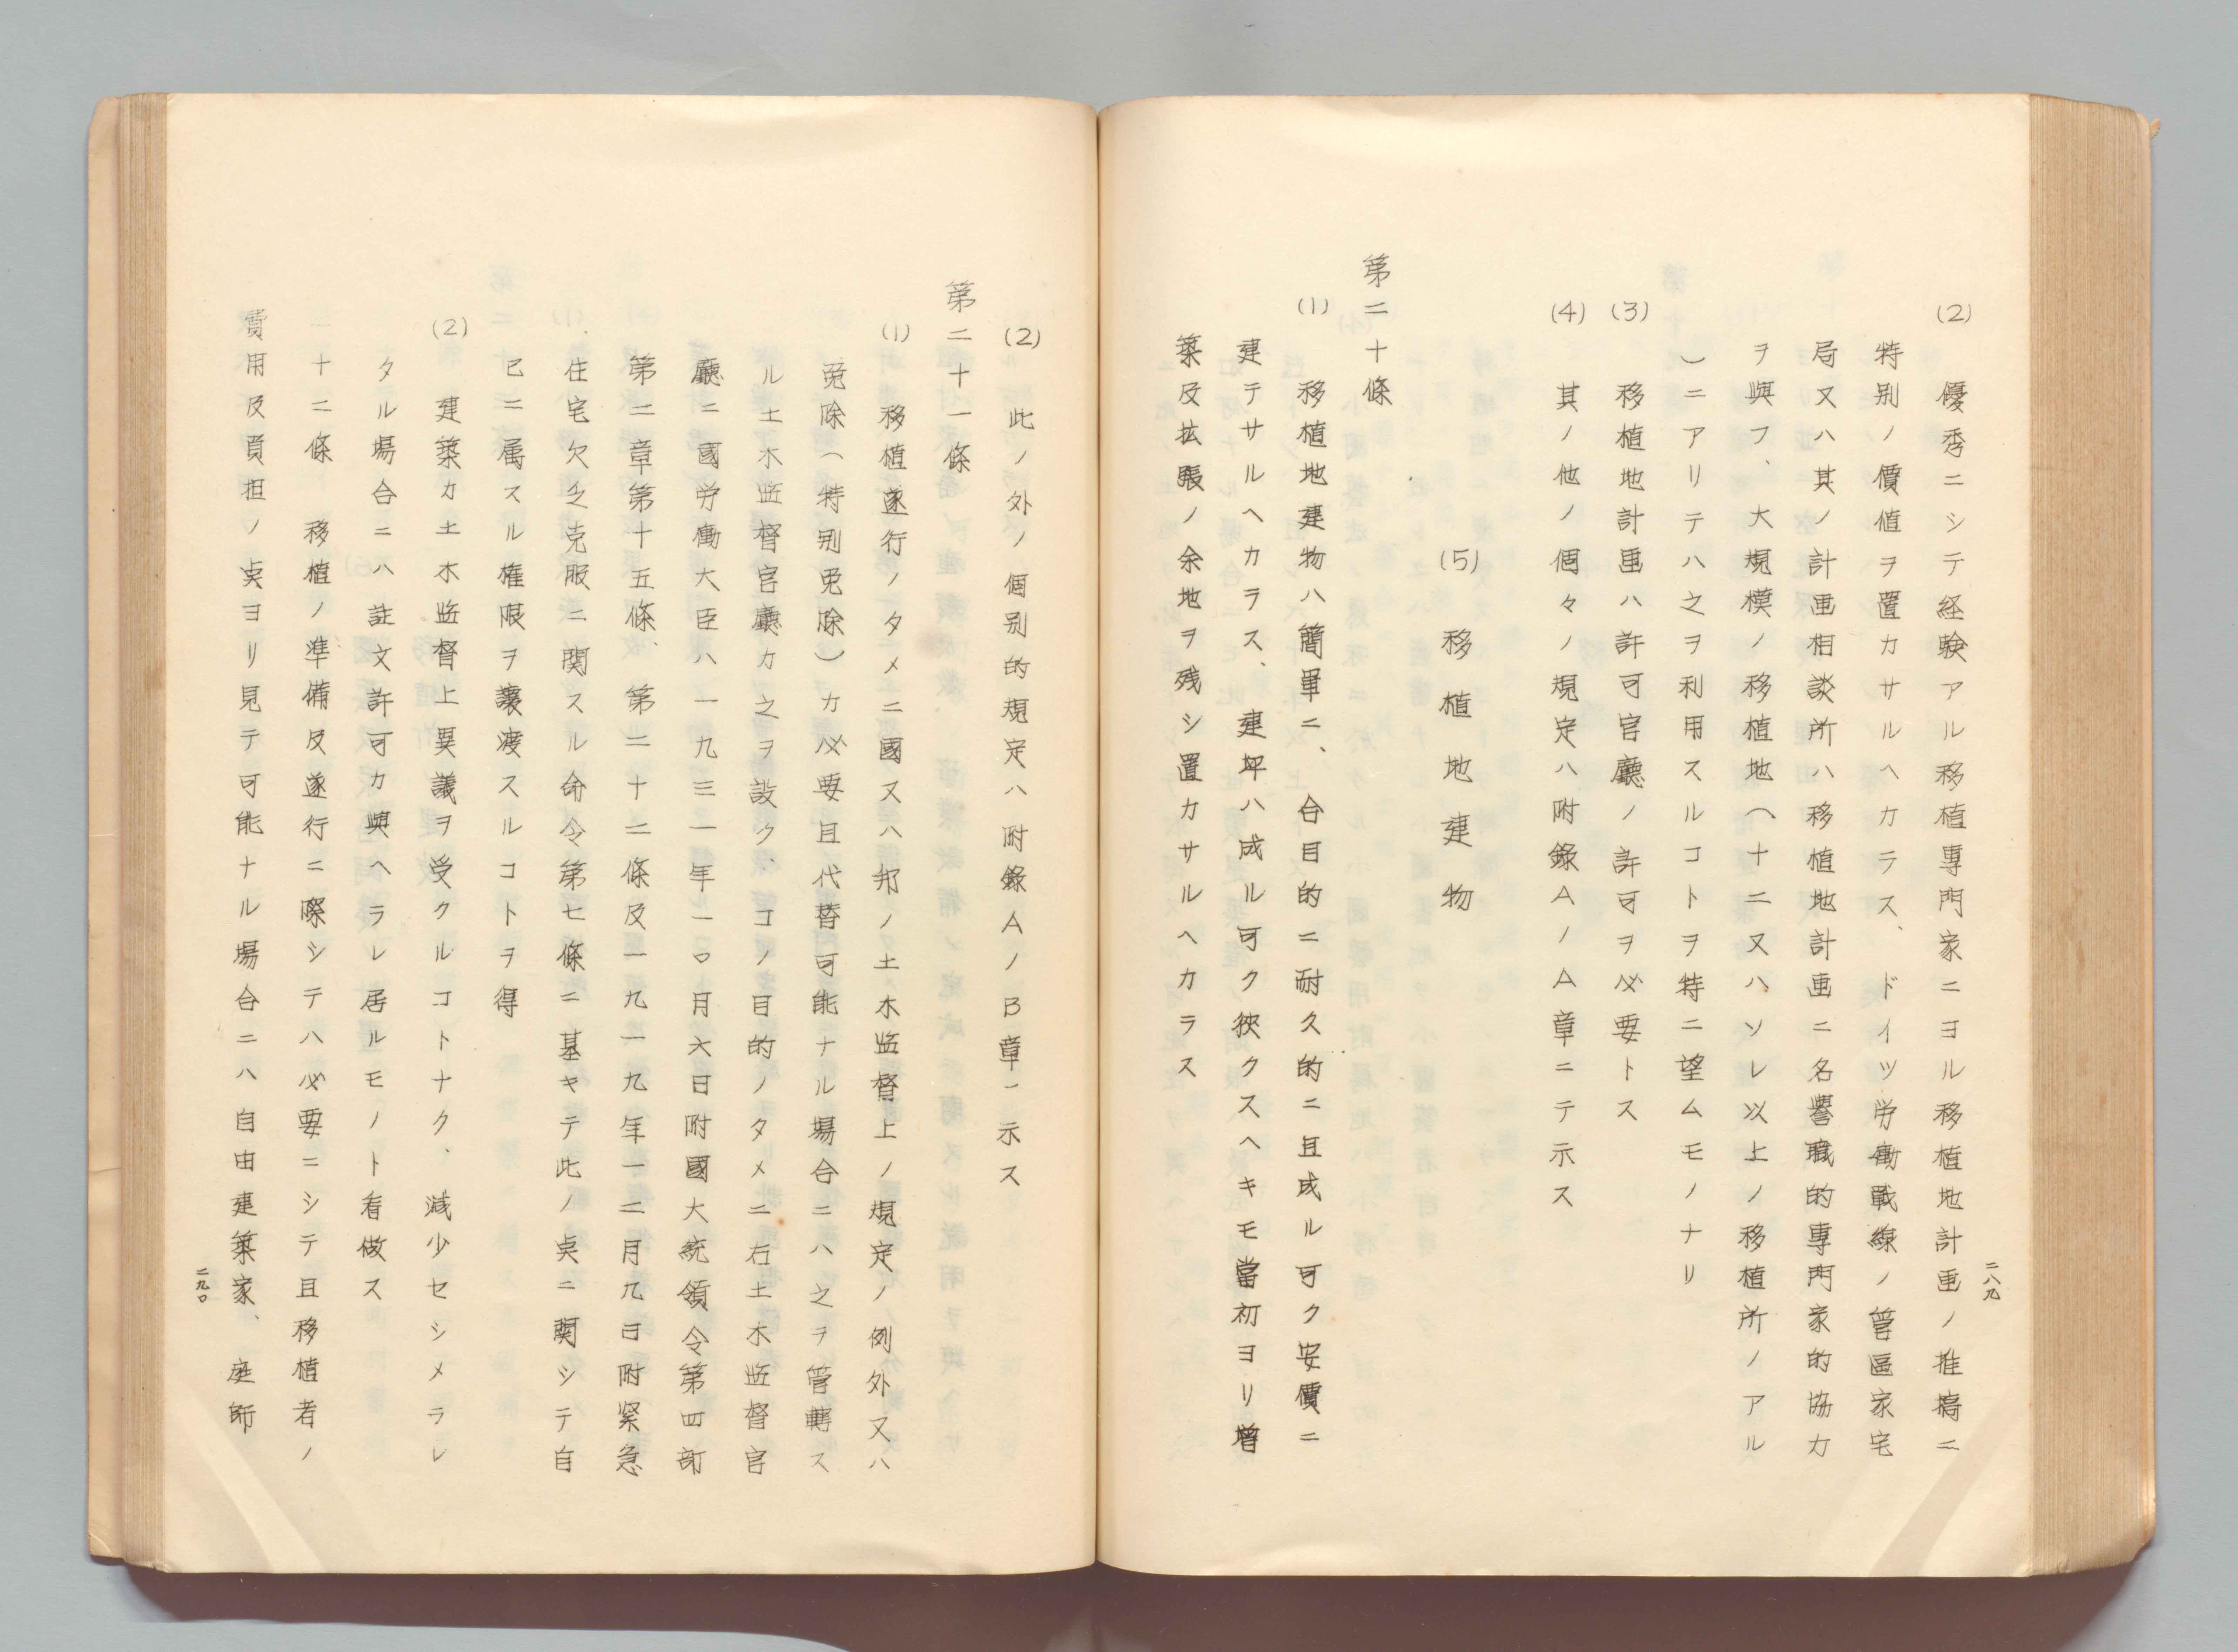 (2) 優秀ニシテ経験アル移植專門家ニヨル移植地計画ノ推搞ニ
特別ノ價値ヲ置カサルヘカラス、ドイツ労働戰線ノ管區家宅
局又ハ其ノ計画相談所ハ移植地計画ニ名譽職的專門家的協力
ヲ與フ、大規模ノ移植地(十二又ハソレ以上ノ移植所ノアル
)ニアリテハ之ヲ利用スルコトヲ特ニ望ムモノナリ
(3) 移植地計画ハ許可官廳ノ許可ヲ必要トス
(4) 其ノ他ノ個々ノ規定ハ附錄AノA章ニテ示ス
(5) 移植地建物
第二十條
(1) 移植地建物ハ簡單ニ、合目的ニ耐久的ニ且成ル可ク安價ニ
建テサルヘカラス、建坪ハ成ル可ク狹クスヘキモ當初ヨリ增
築及拡張ノ余地ヲ残シ置カサルヘカラス
二八九
(2) 此ノ外ノ個別的規定ハ附錄AノB章ニ示ス
第二十一條
(1) 移植遂行ノタメニ國又ハ邦ノ土木監督上ノ規定ノ例外又ハ
免除(特別免除)カ必要且代替可能ナル場合ニハ之ヲ管轄ス
ル土木監督官廳カ之ヲ設ク、コノ目的ノタメニ右土木監督官
廳ニ國労働大臣ハ一九三一年一〇月六日附國大統領令第四部
第二章第十五條、第二十二條及一九一九年一二月九日附緊急
住宅欠乏克服ニ関スル命令第七條ニ基キテ此ノ点ニ関シテ自
已ニ属スル権限ヲ讓渡スルコトヲ得
(2) 建築カ土木監督上異議ヲ受クルコトナク、減少セシメラレ
タル場合ニハ註文許可カ與ヘラレ居ルモノト看做ス
二十二條 移植ノ準備及遂行ニ際シテハ必要ニシテ且移植者ノ
費用及負担ノ点ヨリ見テ可能ナル場合ニハ自由建築家、庭師
二九〇